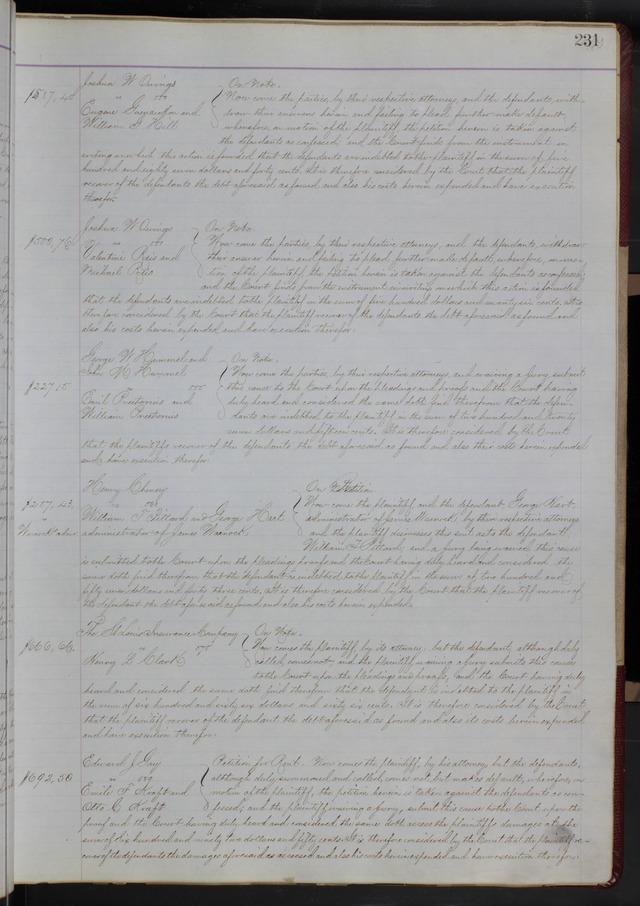 231
Joshua W Owings On Note.
$587,40 " vs Now come the parties, by their respective attorneys, and the defendants, with-
Eugene and draw their answer herein and failing to plead further make default,
William H Hill wherefore, on motion of the plaintiff, the petition herein is taken against
the defendants as confessed, and the Court finds from the instrument in
writing on which this action is founded that the defendants are indebted to the plaintiff in the sum of five
hundred and eighty seven dollars and forty cents. It is therefore considered by the Court that the plaintiff
recover of the defendants the debt aforesaid as found and also his costs herein expended and have execution
therefor.
Joshua W Owings On Note.
$500,76 " vs Now come the parties, by their respective attorneys, and the defendants, withdraw
Valentine Reis and their answer herein and failing to plead further make default, wherefore, on mo-
Michael Reis tion of the plaintiff, the petition herein is taken against the defendants as confessed,
and the Court finds from the instrument in writing on which this action is founded
that the defendants are indebted to the plaintiff in the sum of five hundred dollars and seventy six cents. It is
therefore considered by the Court that the plaintiff recover of the defendants the debt aforesaid as found and
also his costs herein expended and have execution therefor.
George W Hummel and On Note.
John M Hummel Now come the parties, by their respective attorneys, and waiving a jury submit
$227 15 " vs this cause to the Court upon the pleadings and proofs and the Court having
Emil and duly heard and considered the same doth find therefrom that the defen-
William dants are indebted to the plaintiffs in the sum of two hundred and twenty
seven dollars and fifteen cents. It is therefore considered by the Court
that the plaintiffs recover of the defendants the debt aforesaid as found and also their costs herein expended
and have execution therefor.
Henry Cheney On Petition
$257,43 " vs Now come the plaintiff and the defendant George Hart
William F Pillard and George Hart administrator of James Warnock by their respective attorneys
administrator of James Warnock and the plaintiff dismisses this suit as to the defendant
William F Pillard, and a jury being waived this cause
is submitted to the Court upon the pleadings and proofs and the Court having duly heard and considered the
same doth find therefrom that the defendant is indebted to the plaintiff in the sum of two hundred and
fifty seven dollars and forty three cents, It is therefore considered by the Court that the plaintiff recover of
the defendant the debt aforesaid as found and also his costs herein expended.
The St Louis Insurance Company On Note.
$666,66 " vs Now comes the plaintiff, by its attorney, but the defendant, although duly
Henry L Clark called, comes not, and the plaintiff waiving a jury submits this cause
to the Court upon the pleadings and proofs, and the Court having duly
heard and considered the same doth find therefrom that the defendant is indebted to the plaintiff in
the sum of six hundred and sixty six dollars and sixty six cents. It is therefore considered by the Court
that the plaintiff recover of the defendant the debt aforesaid as found and also its costs herein expended
and have execution therefor.
Edward J Gay Petition for Rent. Now comes the plaintiff, by his attorney, but the defendants,
$692,50 " vs although duly summoned and called, come not, but make default, wherefore, on
Emile F Kraft and motion of the plaintiff, the petition herein is taken against the defendants as con-
Otto C Kraft fessed, and the plaintiff waiving a jury, submits this cause to the Court upon the
proof and the Court having duly heard and considered the same doth assess the plaintiff's damages at the
sum of Six hundred and ninety two dollars and fifty cents. It is therefore considered by the Court that the plaintiff re-
cover of the defendants the damages aforesaid as assessed and also his costs herein expended and have execution therefor.